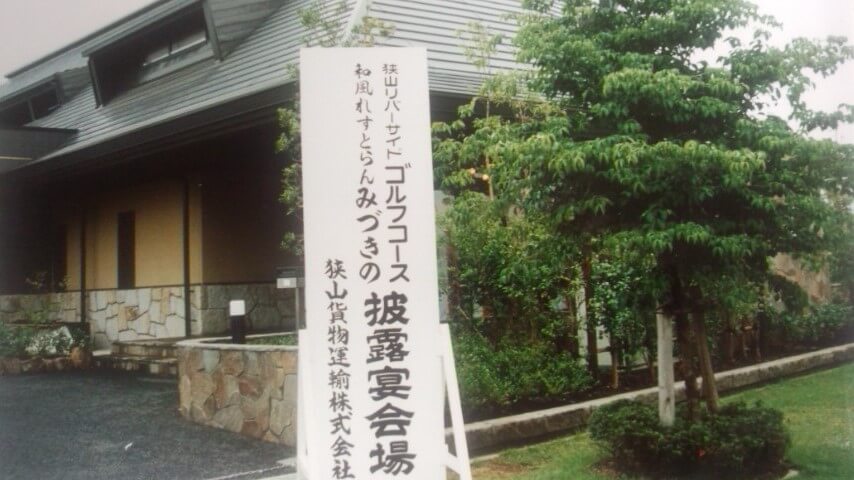 狭山リバーサイドゴルフコース
和風れすとらんみづきの
披露宴会場
狭山貨物運輸株式会社